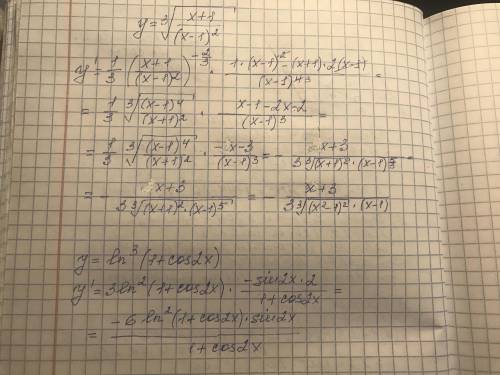 y = ∛((x+1)/(x-1)²)
y' = 1/3 ((x+1)/(x-1)²)^(-2/3) · (1·(x-1)² - (x+1)·2(x-1))/(x-1)⁴ =
= 1/3 ∛((x-1)⁴/(x+1)²) · (x-1-2x-2)/(x-1)³ =
= 1/3 ∛((x-1)⁴/(x+1)²) · (-x-3)/(x-1)³ = - (x+3)/(3∛((x+1)²·(x-1)⁵)) =
= - (x+3)/(3∛((x+1)²·(x-1)⁵)) = - (x+3)/(3∛((x²-1)²)·(x-1))
y = ln³(1+cos2x)
y' = 3ln²(1+cos2x) · (-sin2x·2)/(1+cos2x) =
= (-6ln²(1+cos2x)·sin2x)/(1+cos2x)